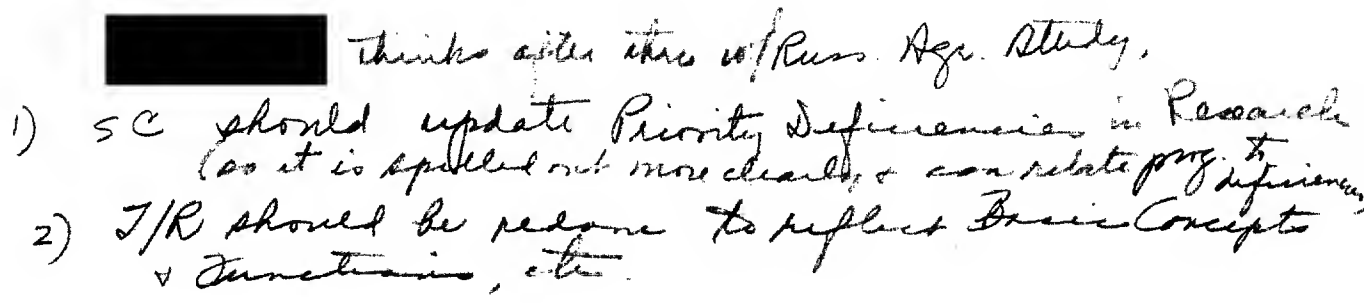 thinks after thru w/Russ. Agr. Study,
1) SC should update Priority Deficiencies in Research
(so it is spelled out more clearly & can relate prog. to deficiencies)
2) T/R should be redone to reflect Basic Concepts
& Functions, etc.